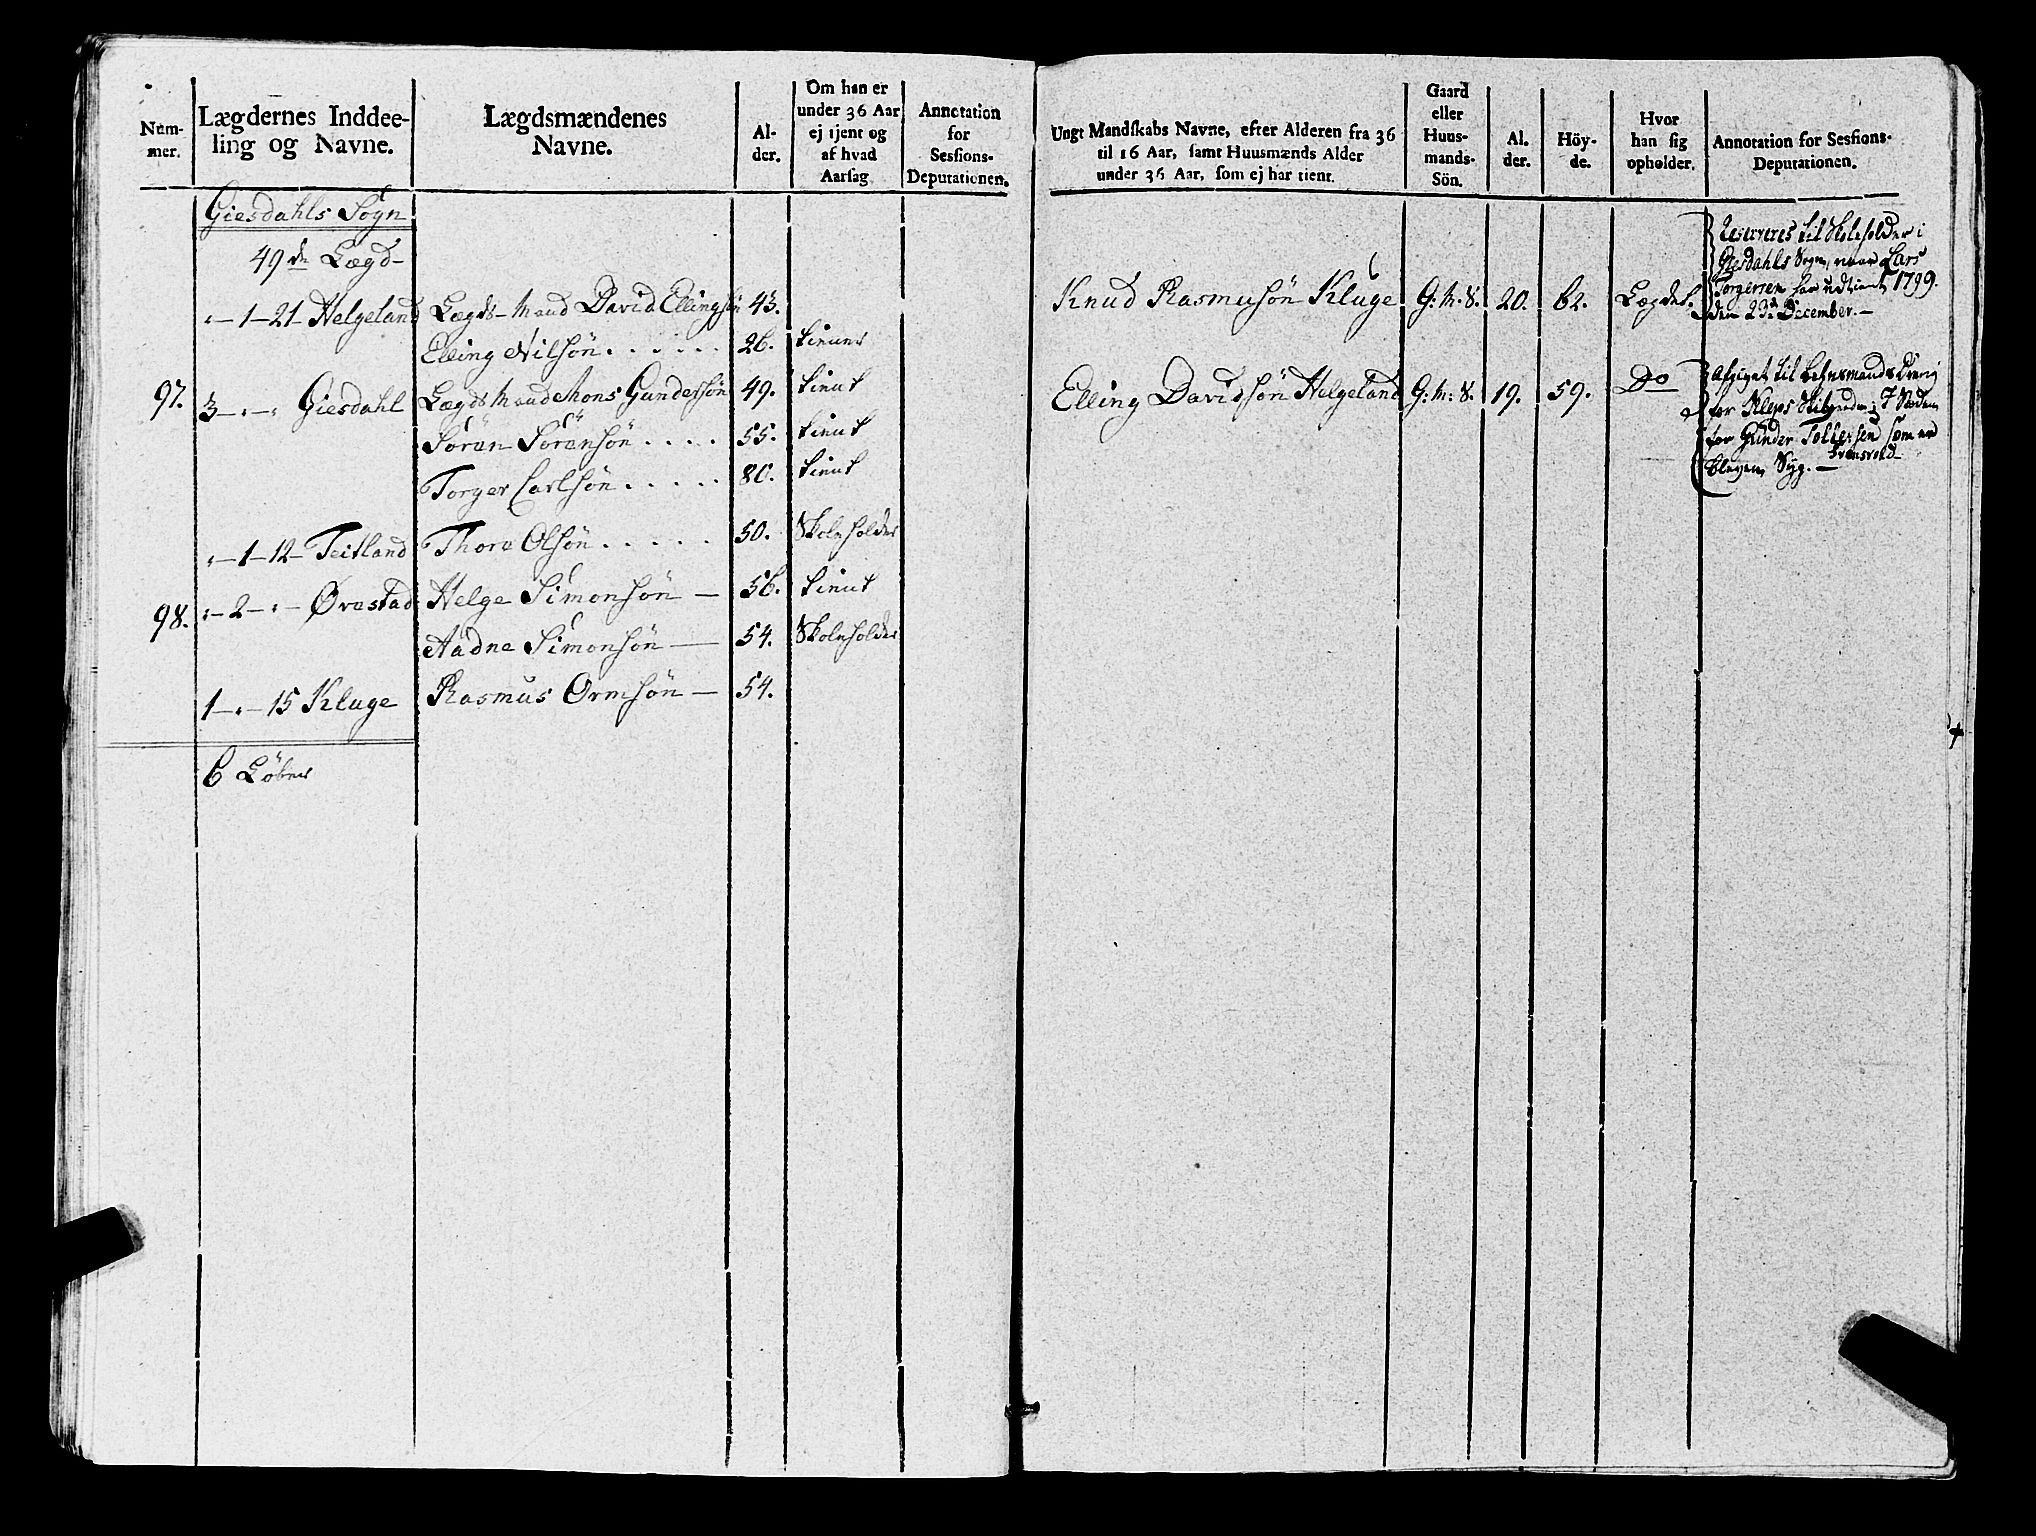 Num-
mer.
Lægdernes Inddee-
ling og Navne.
Lægdsmændenes
Navne.
Al-
der.
Om han er
under 36 Aar
ej tjent og
af hvad
Aarsag
Annotation
for
Sessions-
Deputationen.
Giesdahls Sogn
49de Lægd-
"-1-21- Helgeland Lægds-Mand David Ellingsøn 43.
Elling Nilsøn...... 26. tiener
97. 3-"-" Giesdahl Lægds Mand Mons Gundersøn 49. tient
Søren Sørensøn.... 55. tient
Torger Carlsøn..... 80. tient
"-1-12- Teitland Thore Olsøn..... 50. Skoleholder
98. "-2-"- Ørestad Helge Simonsøn - 56. tient
Aadne Simonsøn - 54. Skoleholder
1-"-15 Kluge Rasmus Ormsøn - 54.
6 Løber
Ungt Mandskabs Navne, efter Alderen fra 36
til 16 Aar, samt Huusmænds Alder
under 36 Aar, som ej har tient.
Gaard
eller
Huus-
mands-
Sön.
Al.
der.
Höy-
de.
Hvor
han sig
opholder.
Annotation for Sessions-
Deputationen.
Knud Rasmusøn Kluge G: M. S. 20. 62. Lægdet.
Reserveres til Skoleholder i
Giesdahls Sogn, naar Lars
Torgersen har udtient 1799.
den 2de December.-
Elling Davidsøn Helgeland G: M: S. 19. 59. Do
Afgivet til Lehnsmands Dreng
for Kleps Skibreede; i Steden
for Gunder Tollefsen som er
bleven Syg.-